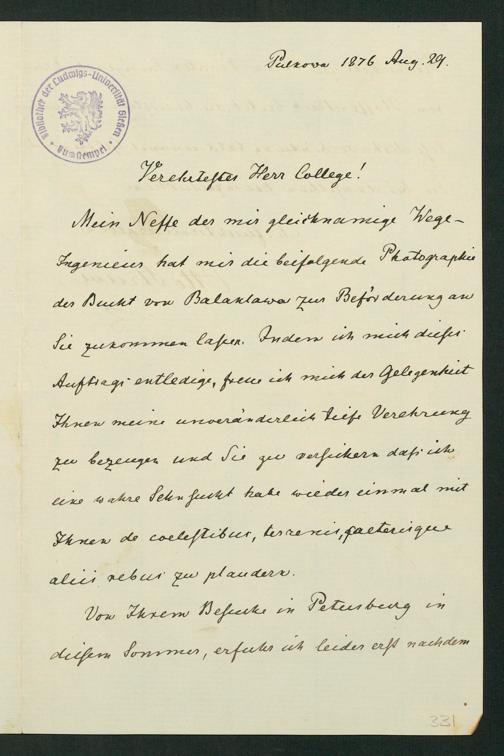 Pulkowa 1876 Aug. 29.
Bibliothek der Ludwigs-Universität Gießen
Verehrtester Herr College!
Mein Neffe der mir gleichnamige Wege-
Ingenieur hat mir die beifolgende Photographie
der Bucht von Balaklawa zur Beförderung an
Sie zukommen laßen. Indem ich mich dieses
Auftrags entledige, freue ich mich der Gelegenheit
Ihnen meine unveränderlich tiefe Verehrung
zu bezeugen und Sie zu versichern daß ich
eine wahre Sehnsucht habe wieder einmal mit
Ihnen de coelestibus, terrenis, caeterisque
aliis rebus zu plaudern.
Von Ihrem Besuche in Petersburg in
diesem Sommer, erfuhr ich leider erst nachdem
331